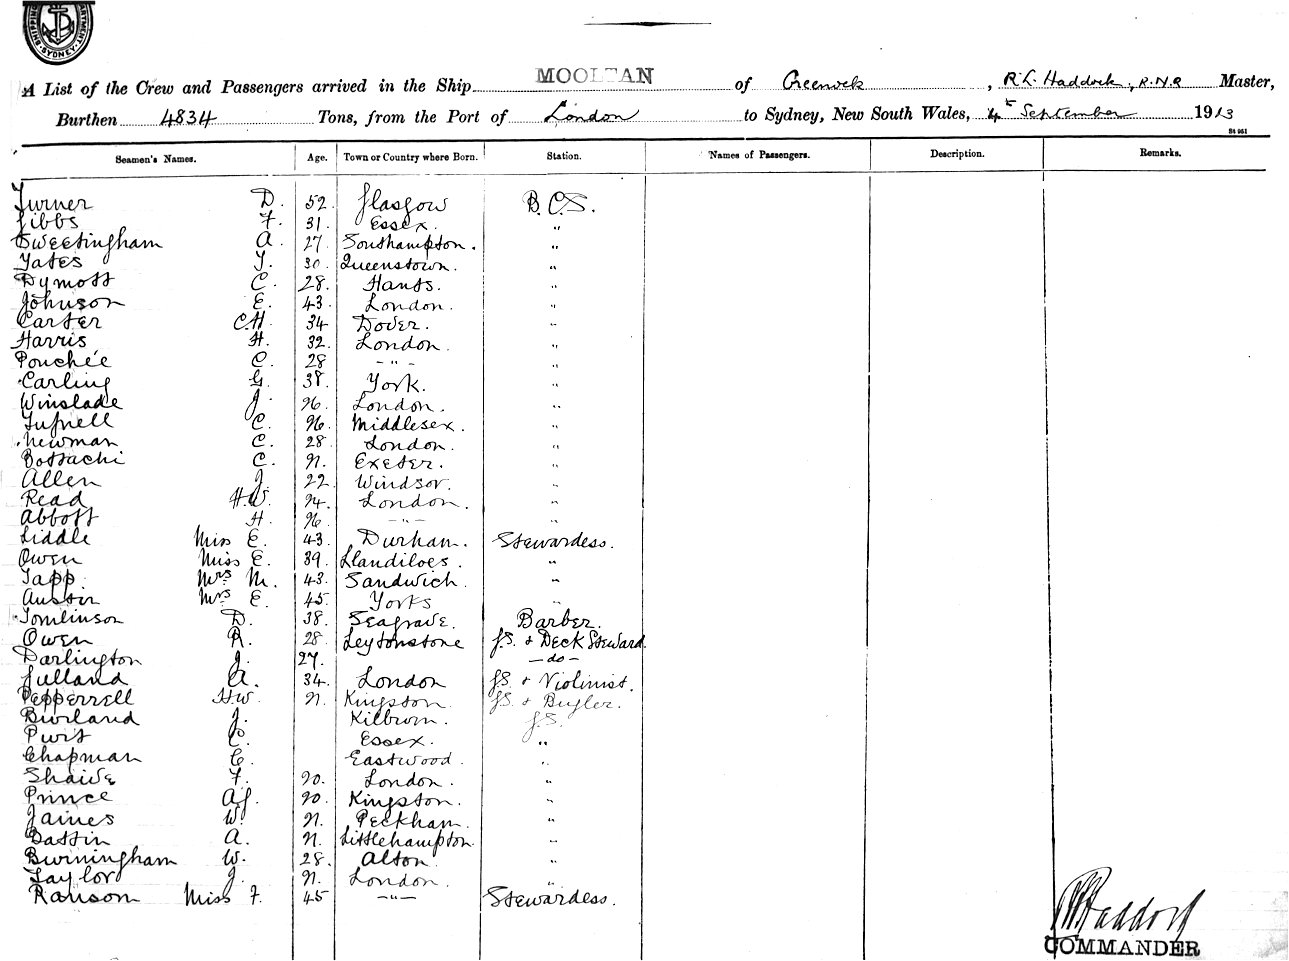 SHIPPING DEPARTMENT. SYDNEY
MOOLTAN
A List of the Crew and Passengers arrived in the Ship of Greenock, R. L. Haddock, R.N.R Master,
Burthen 4834 Tons, from the Port of London to Sydney, New South Wales, 4th September 1913
St 951
Seamen's Names. Age. Town or Country where Born. Station. Names of Passengers. Description. Remarks.
Turner D. 52 Glasgow B.C.S.
Gibbs F. 31. Essex. "
Sweetingham A. 27 Southampton. "
Yates T. 30. Queenstown. "
Dymott C. 28. Hants. "
Johnson E. 43. London. "
Carter C.H. 34 Dover. "
Harris H. 32. London. "
Pouchée C. 28 - " - "
Carling G. 38 York. "
Winslade J. 26. London. "
Tufnell C. 26. Middlesex. "
Newman C. 28 London. "
Bottachi C. 21. Exeter. "
Allen J. 22 Windsor. "
Read H.W. 24. London. "
Abbott H. 26. - " - "
Liddle Miss E. 43. Durham. Stewardess.
Owen Miss E. 39. Llandiloes. "
Tapp Mrs M. 43. Sandwich. "
Austin Mrs E. 45. Yorks "
Tomlinson D. 38. Seagrave. Barber.
Owen R. 28 Leytonstone G.S. & Deck Steward.
Darlington J. 27. — do —
Julland A. 34. London G.S. & Violinist.
Pepperrell H.W. 21. Kingston. G.S. & Bugler.
Burland J. Kilburn. G.S.
C. Essex. "
Chapman C. Eastwood. "
F. 20. London. "
Prince A.J. 20. Kingston. "
James W. 21. Peckham. "
Battin A. 21. Littlehampton. "
Burmingham W. 28. Alton. "
Taylor J. 21. London. "
Ranson Miss F. 45 — " — Stewardess.
R L Haddock
COMMANDER